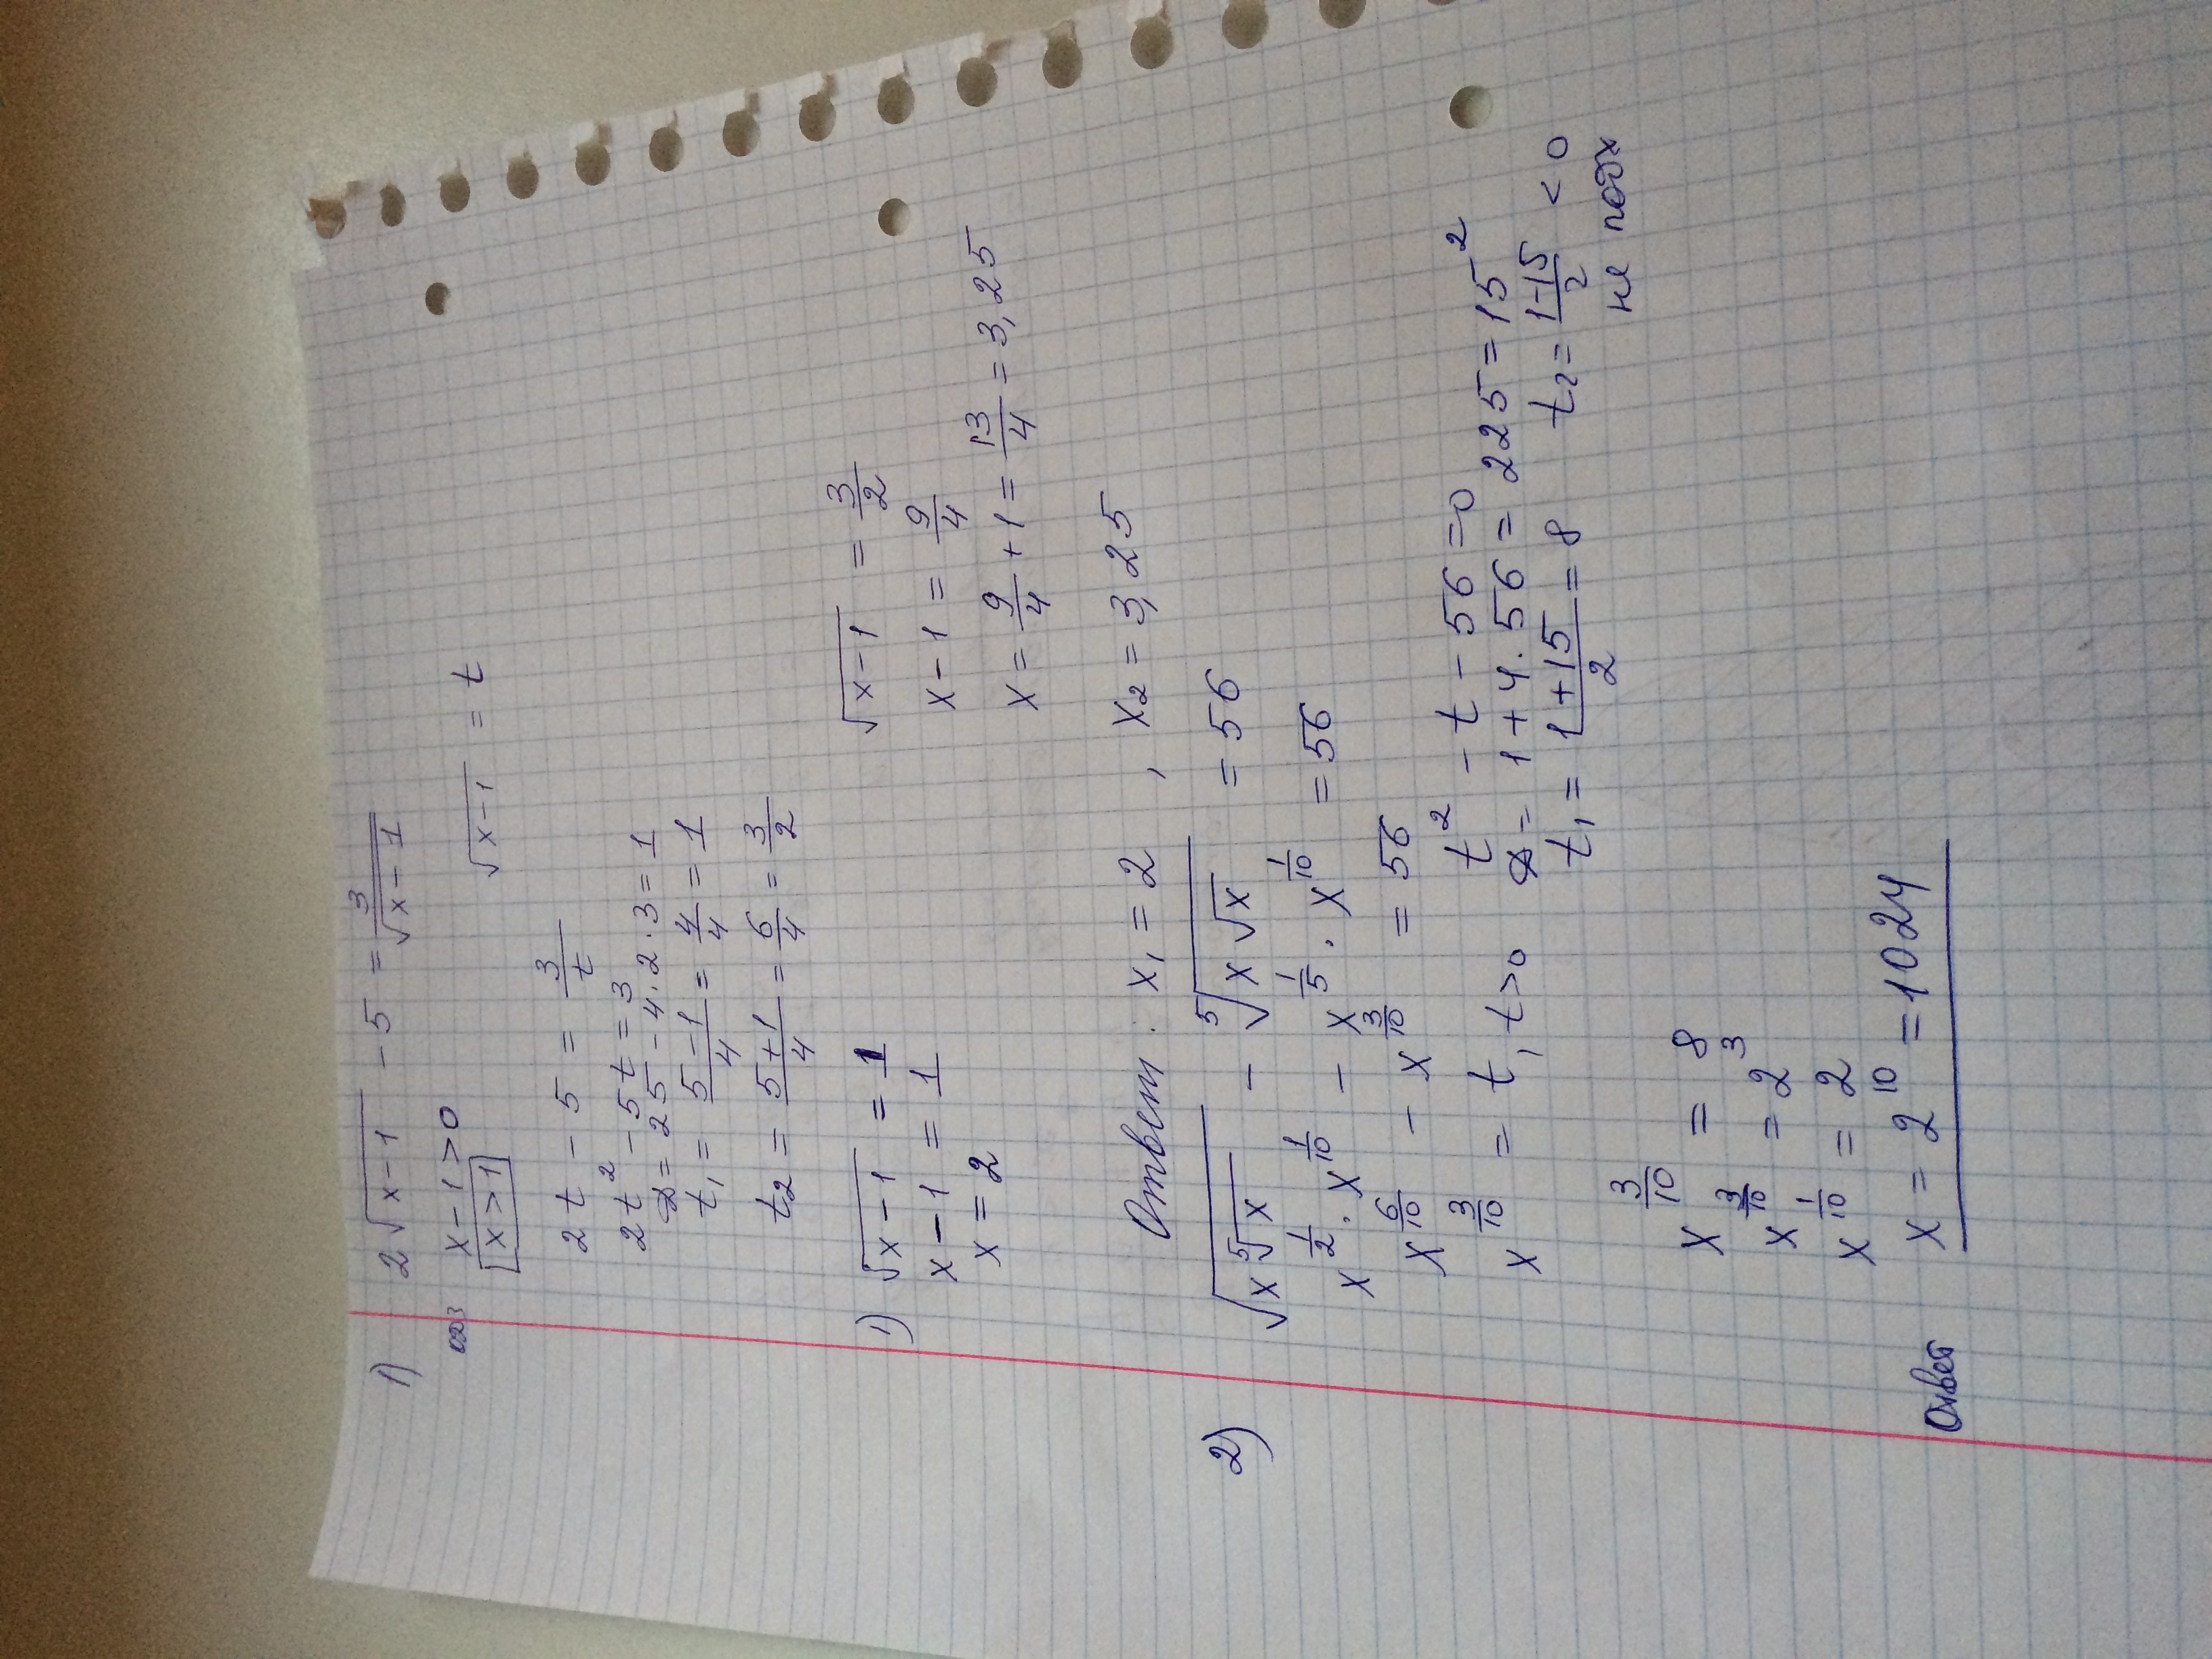 1) 2√(x-1) - 5 = 3/√(x-1)
ОДЗ x-1>0 √(x-1) = t
x>1
2t - 5 = 3/t
2t² - 5t = 3
D = 25 - 4·2·3 = 1
t₁ = (5-1)/4 = 4/4 = 1
t₂ = (5+1)/4 = 6/4 = 3/2
1) √(x-1) = 1 √(x-1) = 3/2
x-1 = 1 x-1 = 9/4
x = 2 x = 9/4 + 1 = 13/4 = 3,25
Ответ: x₁ = 2, x₂ = 3,25
2) √(x ⁵√x) - ⁵√(x√x) = 56
x^(1/2) · x^(1/10) - x^(1/5) · x^(1/10) = 56
x^(6/10) - x^(3/10) = 56
x^(3/10) = t, t>0 t² - t - 56 = 0
D = 1 + 4·56 = 225 = 15²
t₁ = (1+15)/2 = 8 t₂ = (1-15)/2 < 0
не подх
x^(3/10) = 8
x^(3/10) = 2³
x^(1/10) = 2
Ответ x = 2^10 = 1024